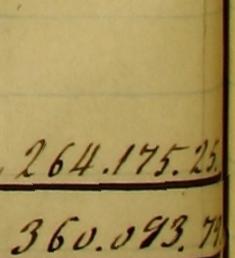 264.175.25.
360.093.79